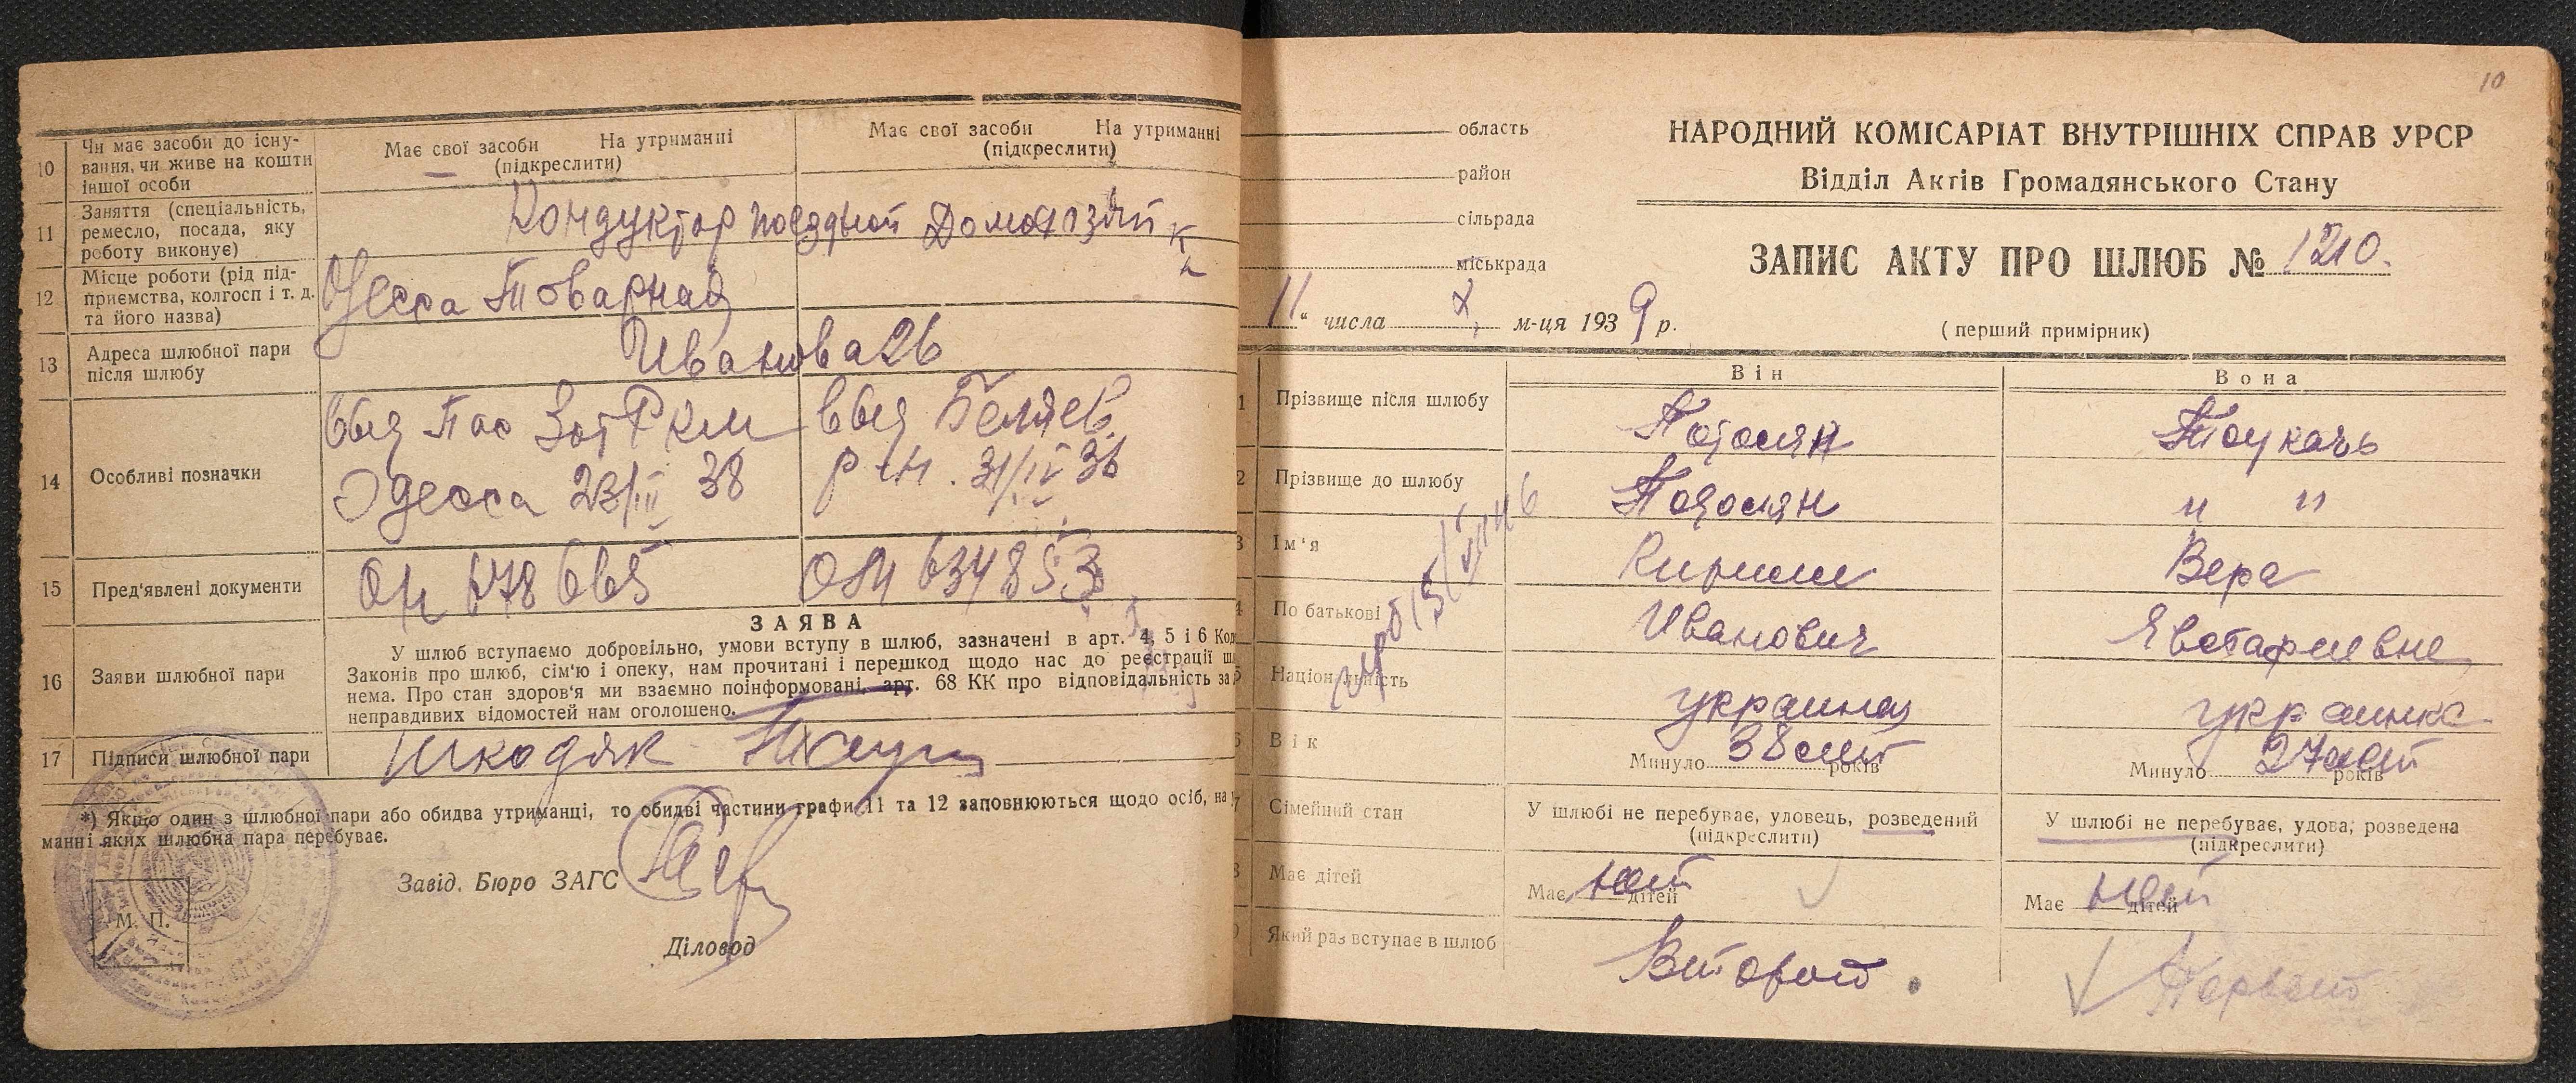 10
Чи має засоби до існу-
вання, чи живе на кошти
іншої особи
Має свої засоби На утриманні
(підкреслити)
Має свої засоби На утриманні
(підкреслити)
11
Заняття (спеціальність,
ремесло, посада, яку
роботу виконує)
Кондуктор поездной
12
Місце роботи (рід під-
приємства, колгосп і т. д.
та його назва)
Одесса Товарная
13
Адреса шлюбної пари
після шлюбу
Иванова 26
14
Особливі позначки
Одесса 23/III 38
15
Пред'явлені документи
634853
16
Заяви шлюбної пари
ЗАЯВА
У шлюб вступаємо добровільно, умови вступу в шлюб, зазначені в арт. 4, 5 і 6 Код
Законів про шлюб, сім'ю і опеку, нам прочитані і перешкод щодо нас до реєстрації ш
нема. Про стан здоров'я ми взаємно поінформовані, арт. 68 КК про відповідальність за
неправдивих відомостей нам оголошено.
17
Підписи шлюбної пари
*) Якщо один з шлюбної пари або обидва утриманці, то обидві частини графи 11 та 12 заповнюються щодо осіб, на
манні яких шлюбна пара перебуває.
Завід. Бюро ЗАГС
М. П.
Діловод
10
область
район
сільрада
міськрада
НАРОДНИЙ КОМІСАРІАТ ВНУТРІШНІХ СПРАВ УРСР
Відділ Актів Громадянського Стану
ЗАПИС АКТУ ПРО ШЛЮБ № 1210.
11 " числа X м-ця 1939 р.
(перший примірник)
Він
Вона
1
Прізвище після шлюбу
2
Прізвище до шлюбу
" "
3
Ім'я
Вера
4
По батькові
Иванович
5
Національність
украинец
украинка
6
Вік
Минуло 38 лет років
Минуло 27 лет років
7
Сімейний стан
У шлюбі не перебуває, уловець, розведений
(підкреслити)
У шлюбі не перебуває, удова, розведена
(підкреслити)
8
Має дітей
Має нет дітей
Має нет дітей
9
Який раз вступає в шлюб
Второй
Первый